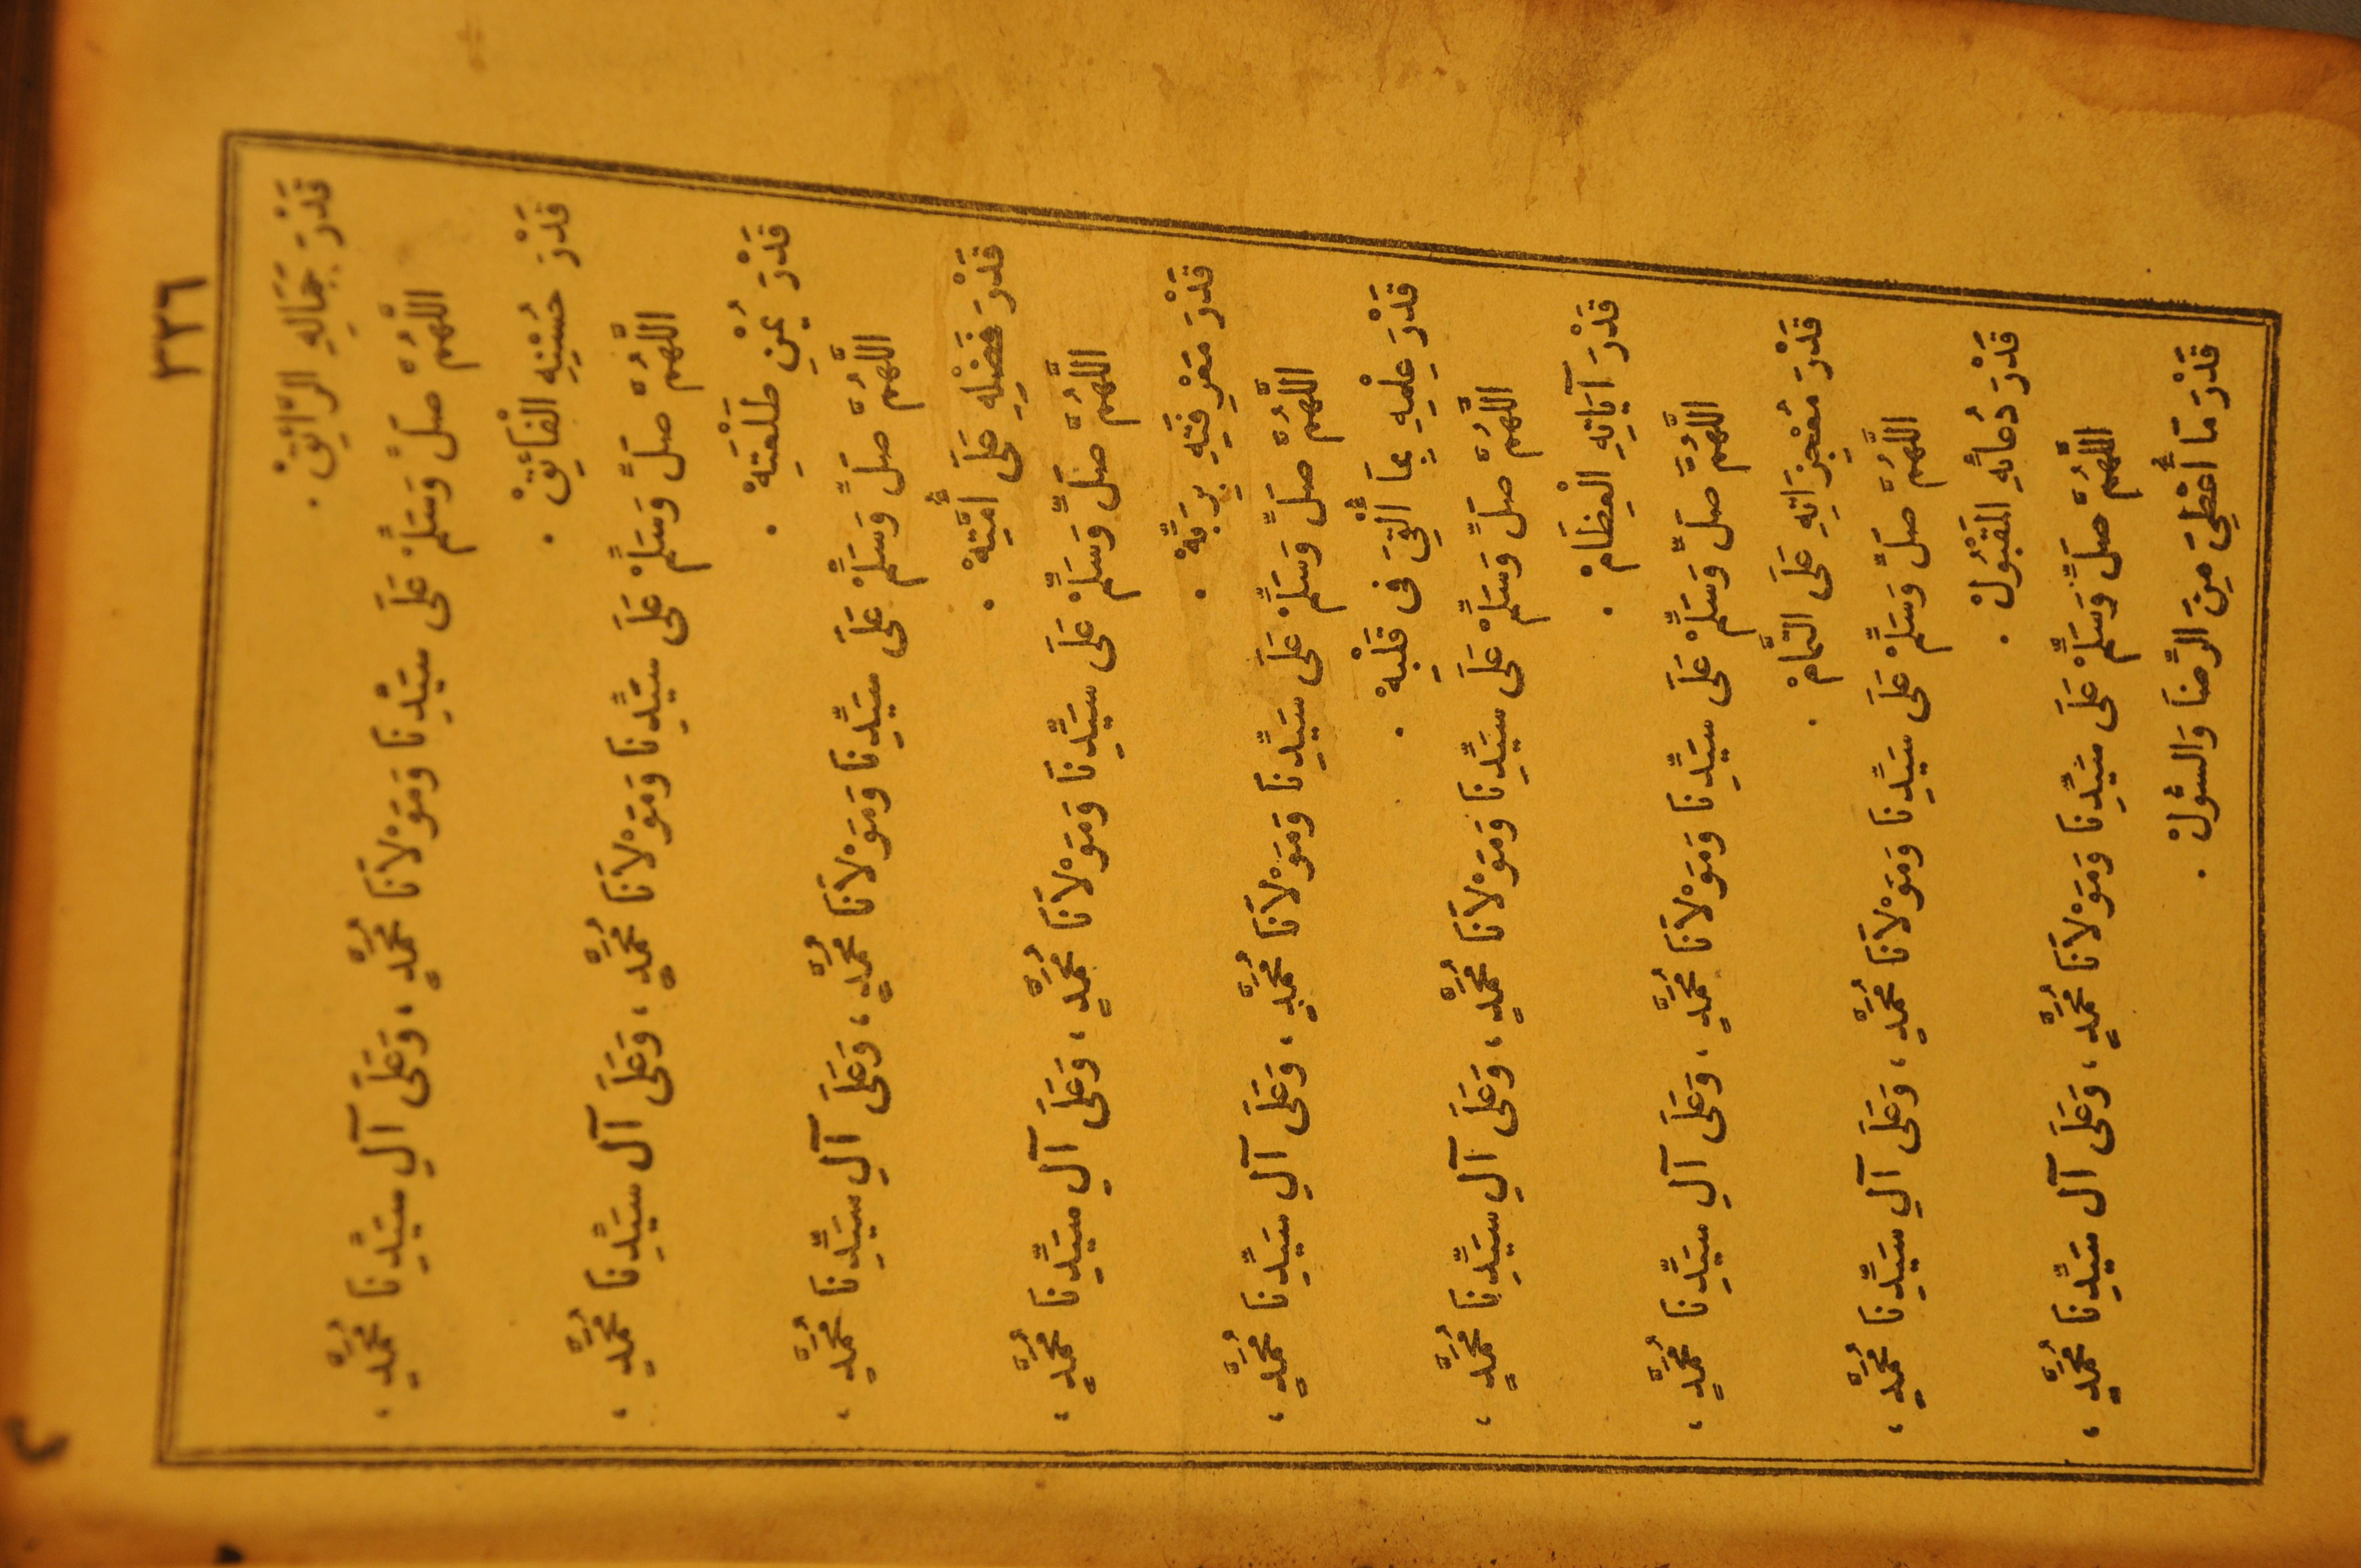 ٣٣٦
قَدْرَ جَمَالِهِ الرَّائِقْ .
اللَّهُمَّ صَلِّ وَسَلِّمْ عَلَى سَيِّدِنَا وَمَوْلاَنَا مُحَمَّدٍ ، وَعَلَى آلِ سَيِّدِنَا مُحَمَّدٍ ،
قَدْرَ حُسْنِهِ الْفَائِقْ .
اللَّهُمَّ صَلِّ وَسَلِّمْ عَلَى سَيِّدِنَا وَمَوْلاَنَا مُحَمَّدٍ ، وَعَلَى آلِ سَيِّدِنَا مُحَمَّدٍ ،
قَدْرَ يُمْنِ طَلْعَتِهْ .
اللَّهُمَّ صَلِّ وَسَلِّمْ عَلَى سَيِّدِنَا وَمَوْلاَنَا مُحَمَّدٍ ، وَعَلَى آلِ سَيِّدِنَا مُحَمَّدٍ ،
قَدْرَ فَضْلِهِ عَلَى أُمَّتِهْ .
اللَّهُمَّ صَلِّ وَسَلِّمْ عَلَى سَيِّدِنَا وَمَوْلاَنَا مُحَمَّدٍ ، وَعَلَى آلِ سَيِّدِنَا مُحَمَّدٍ ،
قَدْرَ مَعْرِفَتِهِ بِرَبِّهْ .
اللَّهُمَّ صَلِّ وَسَلِّمْ عَلَى سَيِّدِنَا وَمَوْلاَنَا مُحَمَّدٍ ، وَعَلَى آلِ سَيِّدِنَا مُحَمَّدٍ ،
قَدْرَ عِلْمِهِ بِمَا أُلْقِيَ فى قَلْبِهْ .
اللَّهُمَّ صَلِّ وَسَلِّمْ عَلَى سَيِّدِنَا وَمَوْلاَنَا مُحَمَّدٍ ، وَعَلَى آلِ سَيِّدِنَا مُحَمَّدٍ ،
قَدْرَ آيَاتِهِ الْعِظَامْ .
اللَّهُمَّ صَلِّ وَسَلِّمْ عَلَى سَيِّدِنَا وَمَوْلاَنَا مُحَمَّدٍ ، وَعَلَى آلِ سَيِّدِنَا مُحَمَّدٍ ،
قَدْرَ مُعْجِزَاتِهِ عَلَى التَّمَامْ .
اللَّهُمَّ صَلِّ وَسَلِّمْ عَلَى سَيِّدِنَا وَمَوْلاَنَا مُحَمَّدٍ ، وَعَلَى آلِ سَيِّدِنَا مُحَمَّدٍ ،
قَدْرَ دُعَائِهِ الْمَقْبُولْ .
اللَّهُمَّ صَلِّ وَسَلِّمْ عَلَى سَيِّدِنَا وَمَوْلاَنَا مُحَمَّدٍ ، وَعَلَى آلِ سَيِّدِنَا مُحَمَّدٍ ،
قَدْرَ مَا أُعْطِيَ مِنَ الرِّضَا وَالسُّولْ .